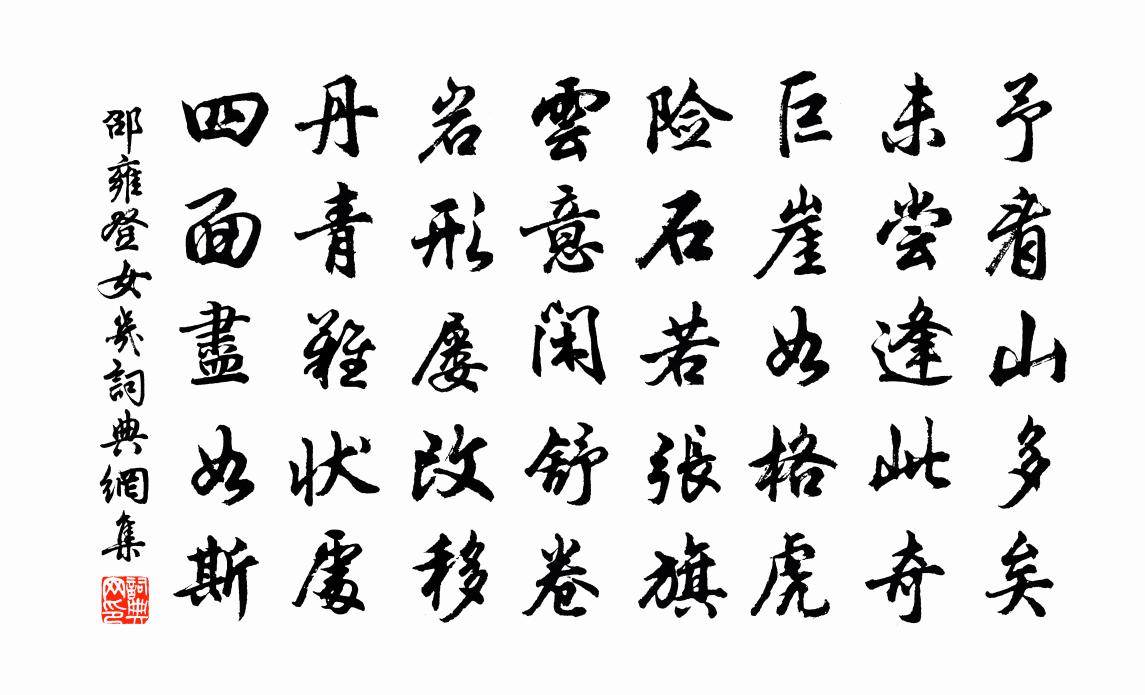 予看山多矣
未尝逢此奇
巨崖如格虎
险石若張旗
雲意闲舒卷
岩形屡改移
丹青難状處
四面盡如斯
邵雍登女幾詞典網集
詞典网印